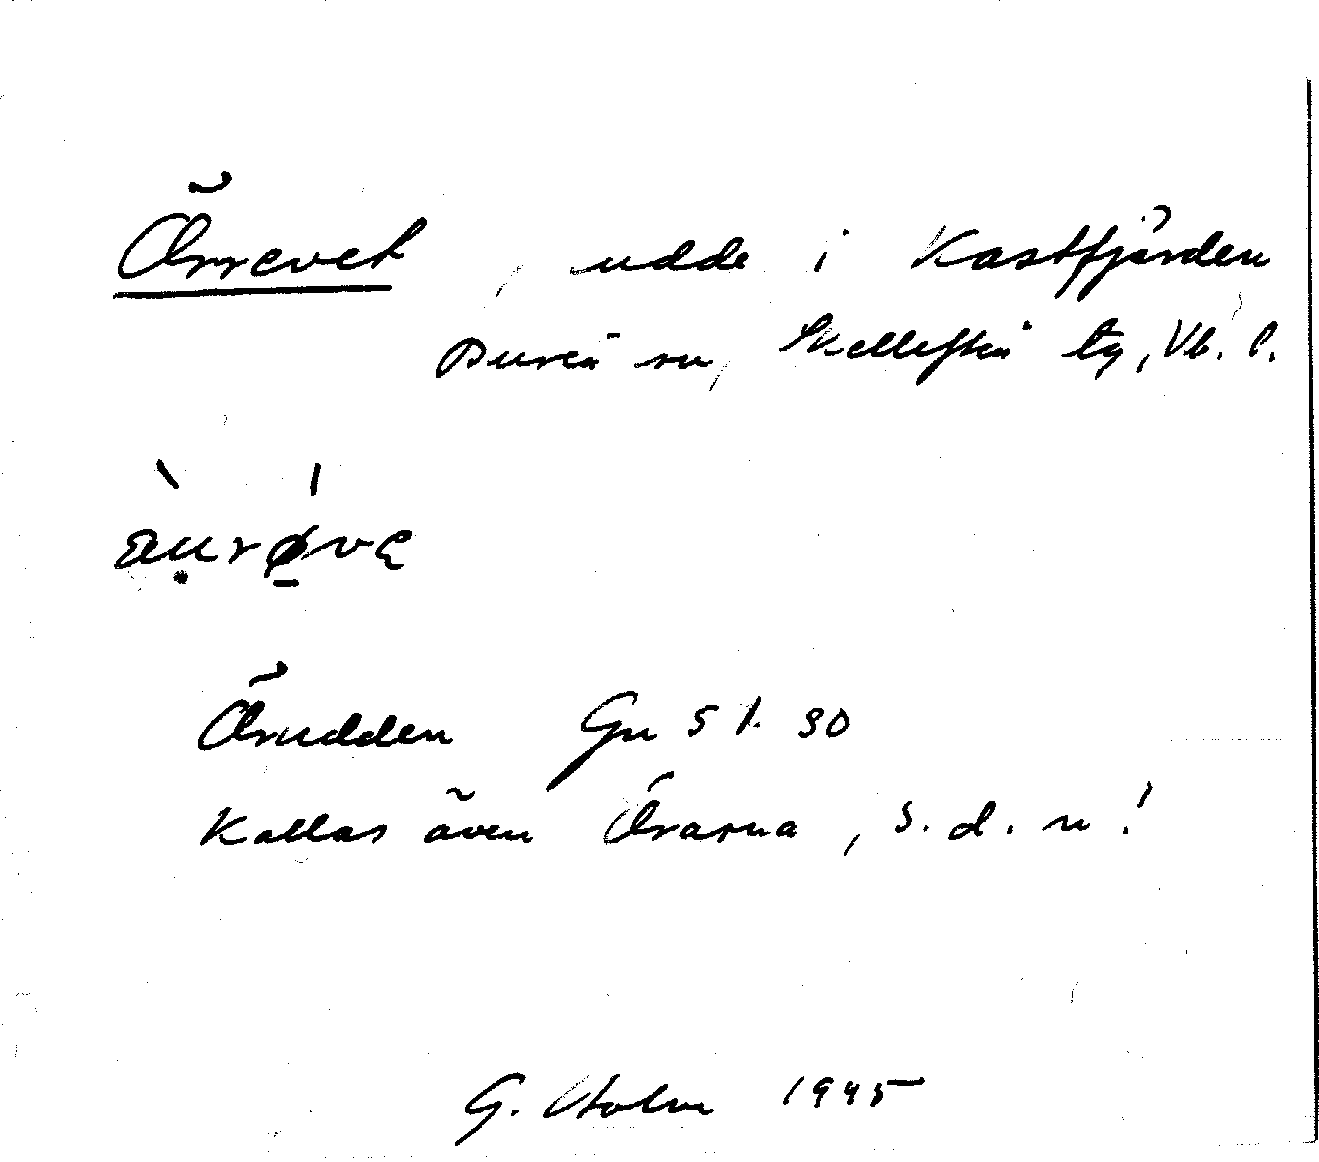 Örrevet, udde i Kastfjärden
Bureå sn, Skellefteå tg, Vb. l.
Örudden Gn 51 30
Kallas även Örarna, s. d. n!
G. Holm 1945